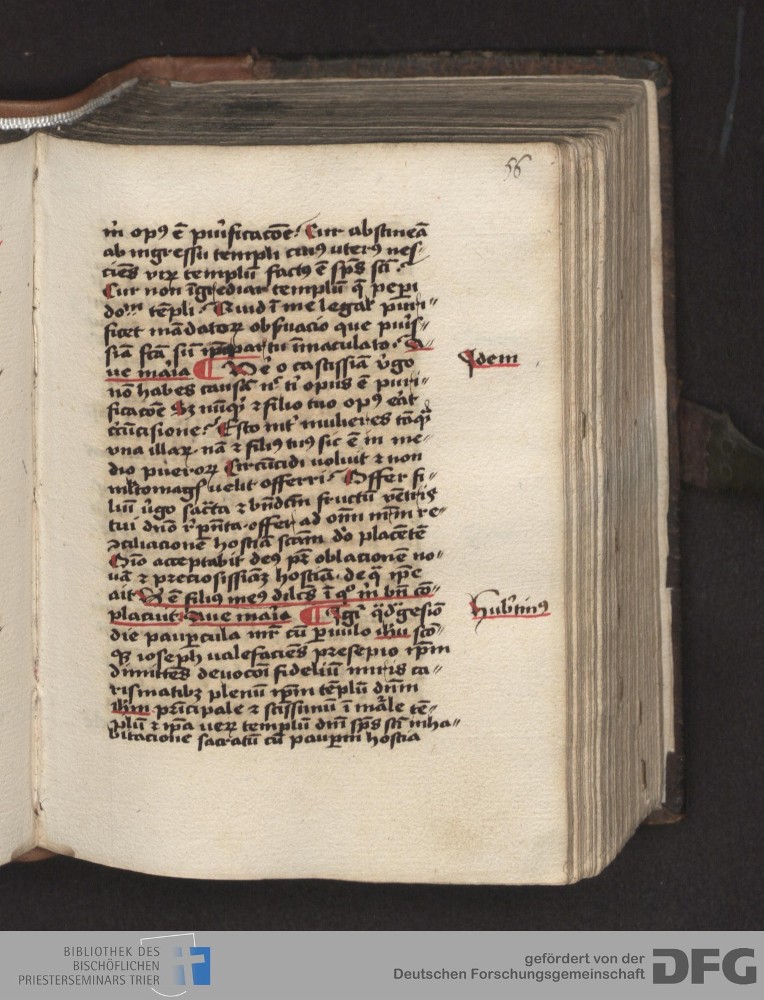 56
m̄ opꝰ ē pui̇ficacōe. Cur abstineā
ab ingressu templi cuiꝰ uterꝰ nes-
ciēs templū factꝰ ē sp̄s sc̄i
Cur non īgrediar templū q̄ peperi
dom̄ tēpli. Quid ī me legal' puri-
ficet mādatoꝝ obs'uacio que
fc̄a sū partu īmaculato. A-
ue ma'ia Ue'e o castissīa v̄go
nō habes causā n' t' opus ē puri-
ficacōe Sꝫ nūqͥd ꝛ filio tuo opꝰ e'at
ci'cūcisione. Esto int' mulieres tāqͣ
vna illaꝝ nā ꝛ filiꝰ tuꝰ sic ē in me-
dio pueroꝝ Circūcidi uoluit ꝛ non
m̄ltomagꝭ uelit offerri. Offer fi-
liū v̄go sac̄ta ꝛ bn̄dc̄m fructū vētris
tui dn̄o rep̄n̄ta. offer ad om̄ n̄m re-
ꝯciliacionē hostiā sc̄am d'o placētē
O'io acceptabit deꝰ p̄r oblacionē no-
uā ꝛ preciosissiāꝫ hostiā. de q̄ ip̄e
ait Hi' ē filiꝰ meꝰ dilc̄s ī qͦ m̄ bn̄ cō-
placuit. Aue ma'ia Igi' qͣd'gesiō
die paup̄cula mr̄ cū p̄uulo ih̄u sc̄o-
qꝫ ioseph ualefaciēs presepio ip̄m
dimittēs deuocōi fideliū miris ca-
rismatibꝫ plenū ip̄m tēplū dn̄m
ih̄m pri̇ncipale ꝛ sc̄issimū ī ma'le tē-
plū ꝛ ip̄a uere templū dn̄i sp̄s sc̄i inha-
bitacione sac̄ratū cū paup̄m hostia
Idem
Hub'tinꝰ
BIBLIOTHEK DES
BISCHÖFLICHEN
PRIESTERSEMINARS TRIER
gefördert von der
Deutschen Forschungsgemeinschaft
DFG